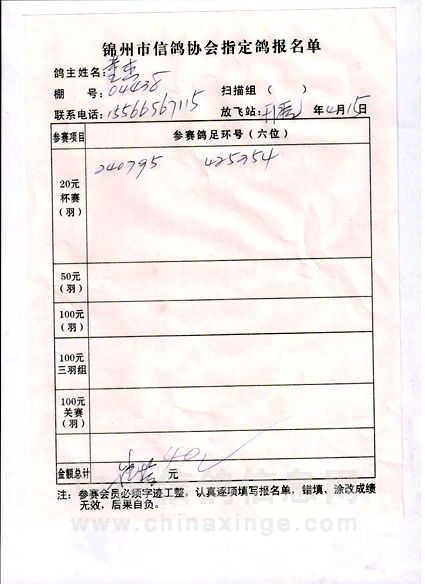 锦州市信鸽协会指定鸽报名单
鸽主姓名:
棚 号: 04438 扫描组 ( )
联系电话: 15566567115 放飞站: 年4月15日
参赛项目 参赛鸽足环号(六位)
20元杯赛(羽) 240795 425954
50元(羽)
100元(羽)
100元三羽组
100元关赛(羽)
金额总计 元 40
注:参赛会员必须字迹工整,认真逐项填写报名单,错填、涂改成绩
无效,后果自负。
中国信鸽信息网
www.chinaxinge.com